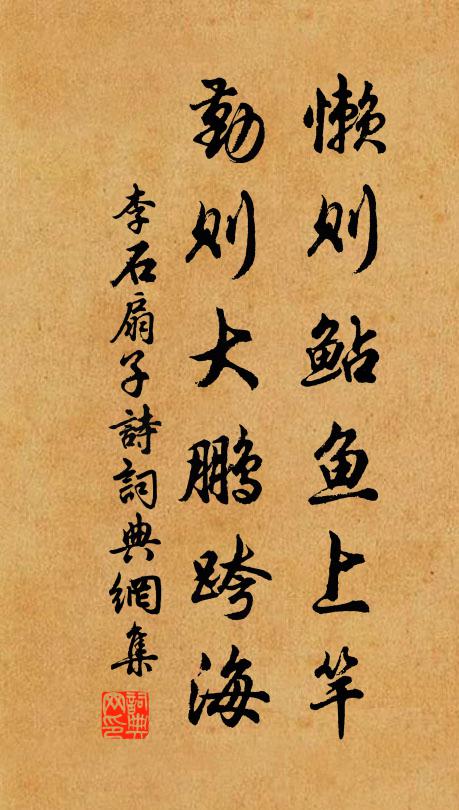 懒则鲇鱼上竿
勤则大鹏跨海
李石扇子詩詞典網集
詞典网印